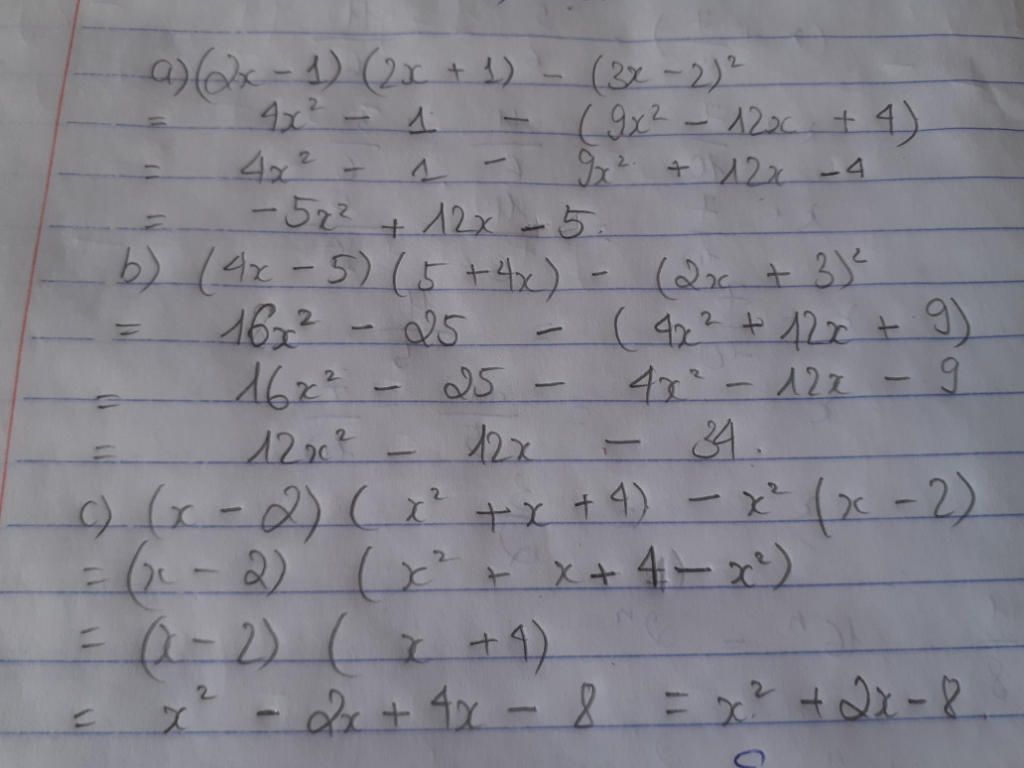 a) (2x - 1) (2x + 1) - (3x - 2)²
= 4x² - 1 - (9x² - 12x + 4)
= 4x² - 1 - 9x² + 12x - 4
= -5x² + 12x - 5.
b) (4x - 5) (5 + 4x) - (2x + 3)²
= 16x² - 25 - (4x² + 12x + 9)
= 16x² - 25 - 4x² - 12x - 9
= 12x² - 12x - 34.
c) (x - 2) (x² + x + 4) - x² (x - 2)
= (x - 2) (x² + x + 4 - x²)
= (x - 2) (x + 4)
= x² - 2x + 4x - 8 = x² + 2x - 8.